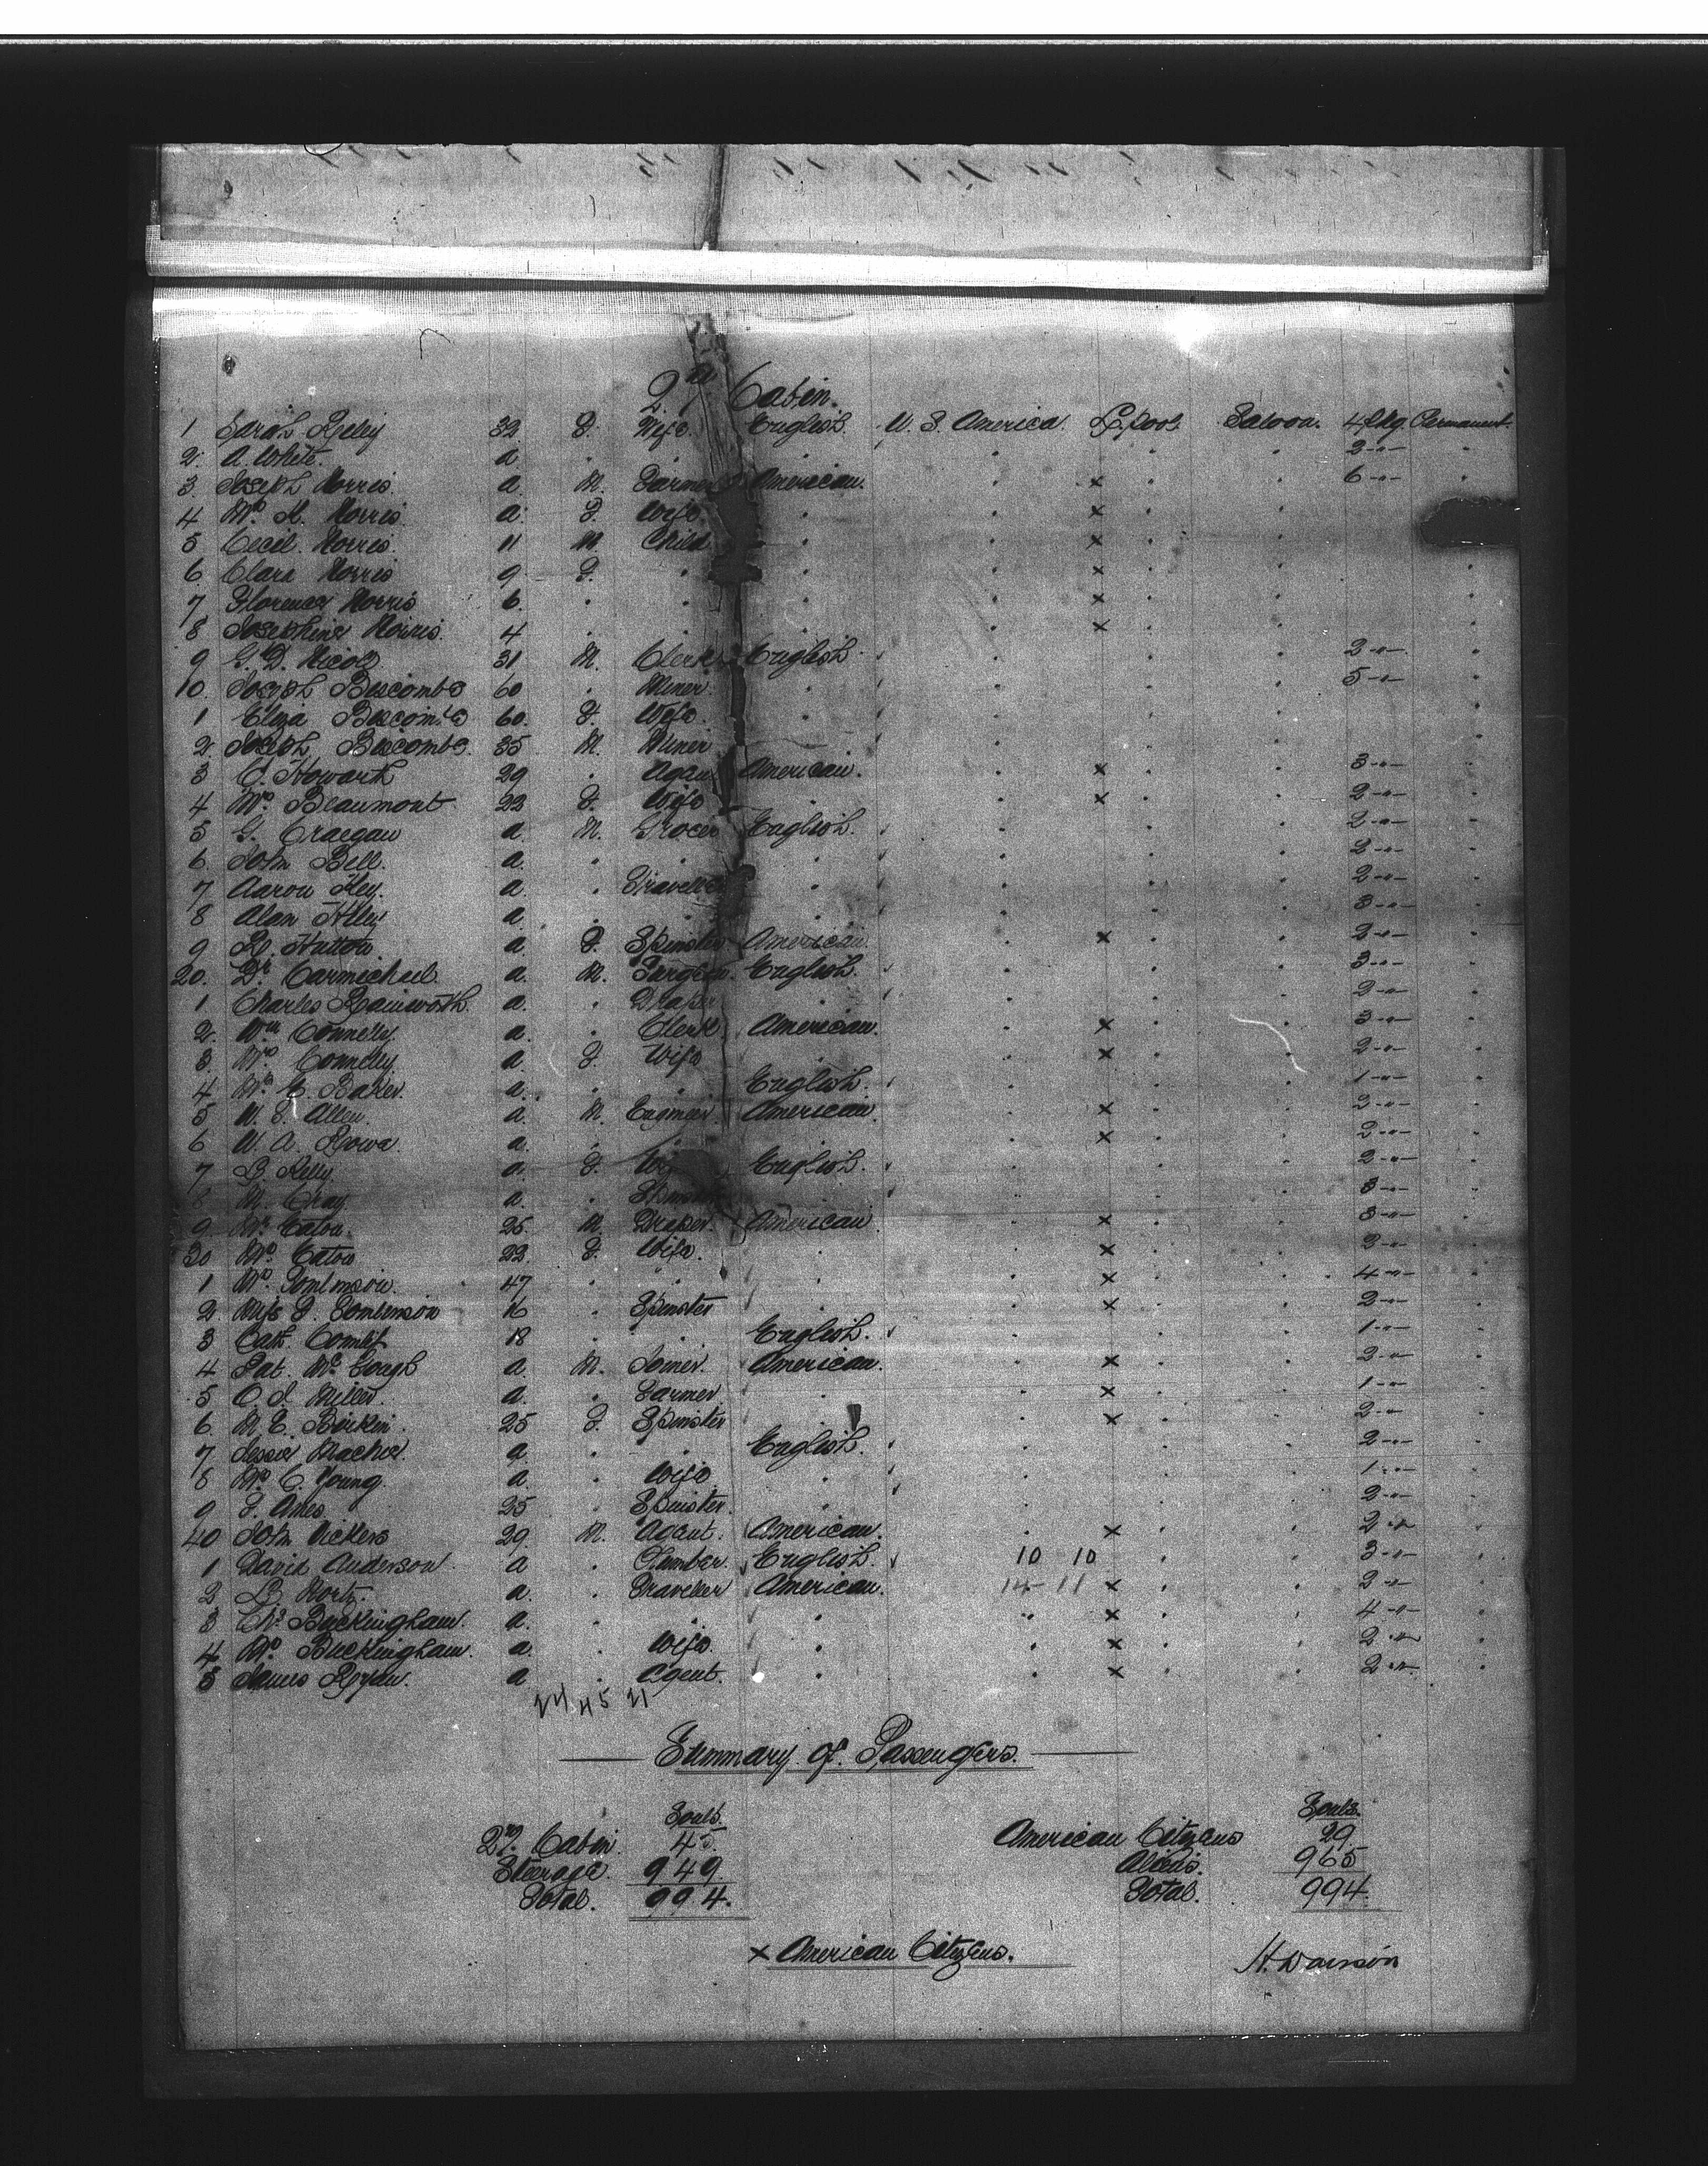 2nd Cabin.
1 Sarah Reley 32 F. Wife. English. U. S. America. L.pool Saloon. 4 pkg Permanent
2. A. White. a. . . . . . . 2 -"- .
3. Joseph Norris. a. M. Farmer American. . x . . 6 -"- .
4 Mrs. A. Norris. a. F. Wife. . . x . .
5 Cecil. Norris. 11 M Child . . x . .
6. Clara Norris 9 F. . . . x . . .
7 Florence Norris 6. . . . . x . . .
8 Josephine Norris. 4 . . . . x . . .
9 G. D. Nicols 31 M. Clerk English . . . 2 -"- .
10. Joseph Bescombs 60 . Miner. . . . . 5 -"- .
1 Eliza Bescombs 60. F. Wife. . . . . .
2. Joseph Bescombs. 35 M. Miner . . . . .
3 C. Howarth 29 . Agent American. . x . . 3 -"- .
4 Mrs. Beaumont 22 F. Wife . . x . . 2 -"- .
5 G. Craegan a M. Grocer English. . . . 2 -"- .
6. John Bell. a. . . . . . . 2 -"- .
7 Aaron a. . Traveller . . . . 2 -"- .
8 Alan a . . . . . . 3 -"- .
9 R. Hutton a F. Spinster American. . x . . 2 -"- .
20. Dr. Carmichael. a. M. Surgeon. English. . . . 3 -"- .
1 Charles Rainworth. a. . Draper . . . . 2 -"- .
2. Wm Connelly. a. . Clerk American. . x . . 3 -"- .
3. Mrs. Connelly. a F. Wife . x . . 2 -"- .
4 Mrs. E. Baker. a. . . English. . . . 1 -"- .
5 W. S. Allen. a. M. Engineer. American. . x . . 2 -"- .
6 W. A. Rowe. a. . . . x . . 2 -"- .
7 B. Kelly a. F. English. . . . 2 -"- .
8 M. Cray a. . Spinster . . . 3 -"- .
9 Mr. Eaton. 25 M. Draper. American . x . . 3 -"- .
30 Mrs. Eaton 22. F. Wife. . . x . . 2 -"- .
1 Mrs. Tomlinson. 47 . . . . x . . 4 -"- .
2 Miss F. Tomlinson 16 . Spinster . . x . . 2 -"- .
3 Cath. 18 . . English. . . . 1 -"- .
4 Pat. Mc. Gough a M. Joiner. American. . x . . 2 -"- .
5 C. J. Miller. a. . Farmer. . . x . . 1 -"- .
6. M. E. Birkin. 25 F. Spinster . . x . . 2 -"- .
7 Jessie Mackie. a . . English. . . . 2 -"- .
8 Mrs. C. Young. a . Wife . . . . 1 -"- .
9 F. Ames 25 . Spinster. . . . . 2 -"- .
40 John Vickers 29. M. Agent. American. . x . . 2 -"- .
1 David Anderson. a . Plumber. English. 10 10 . . 3 -"- .
2 B. Hortz. a. . Traveller American. 14 11 x . . 2 -"- .
3 Chs. Buckingham. a. . . " x . . 4 -"- .
4 Mrs. Buckingham. a. . Wife. . . x . . 2 -"- .
5 James Ryan. a . Agent. . . x . . 2 -"- .
24 45 21
Summary of Passengers.
Souls. Souls.
2nd. Cabin. 45. American Citizens 29
Steerage. 949 Aliens. 965
Total. 994. Total. 994.
x American Citizens. H. Dawson